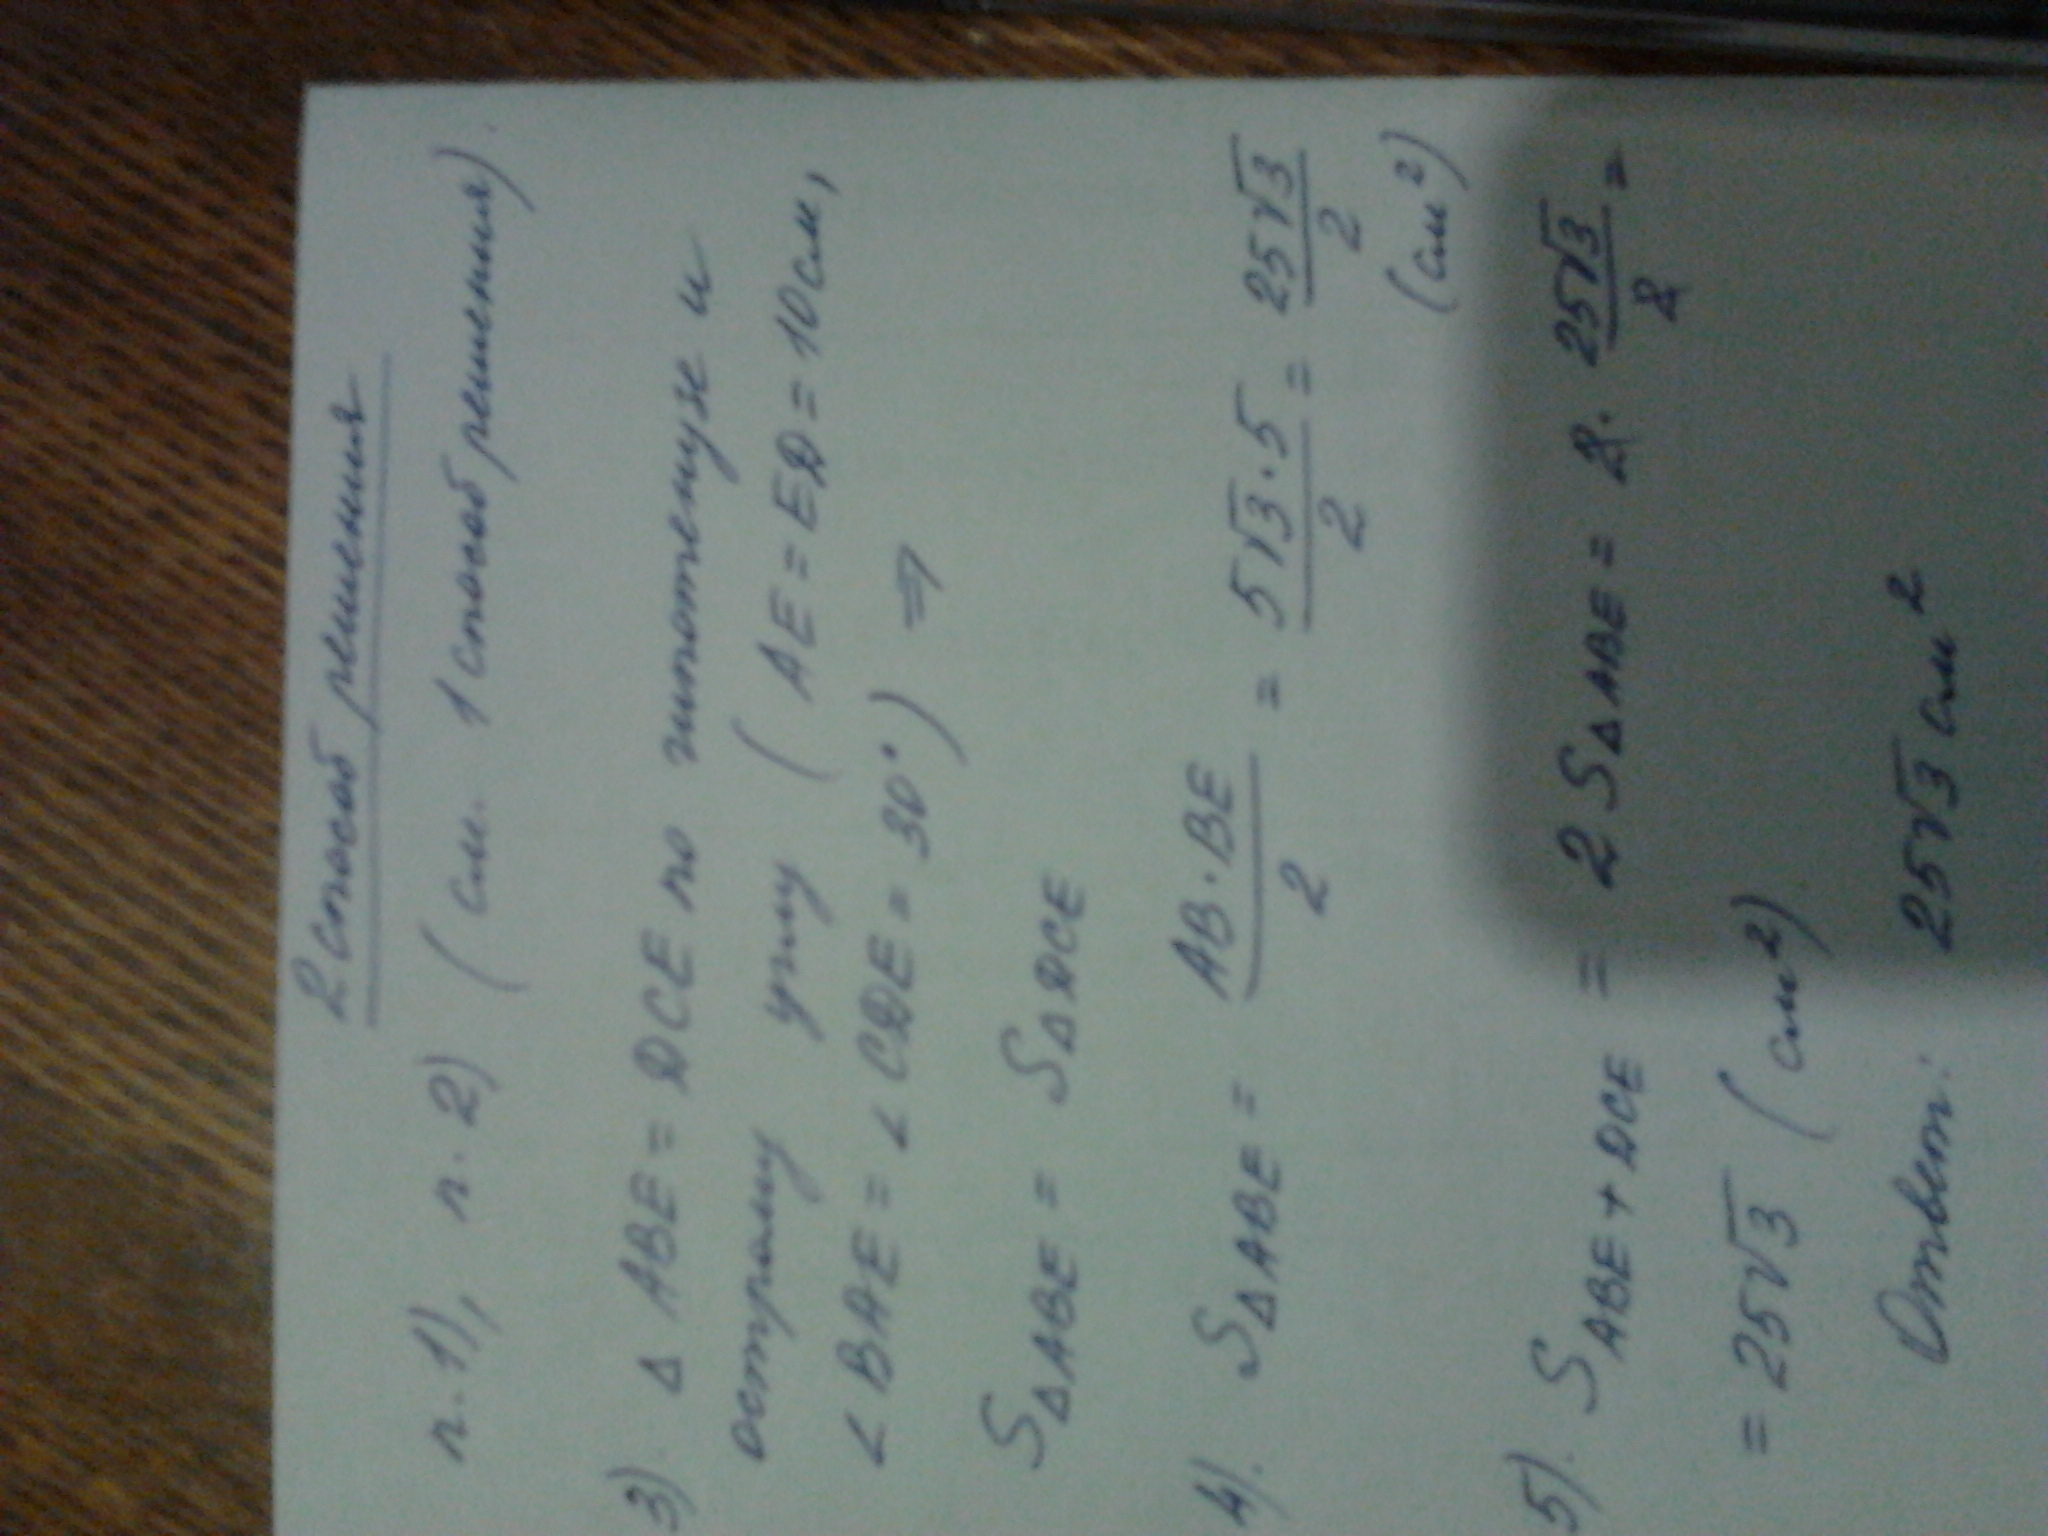 2 способ решения
п.1), п.2) (см. 1 способ решения).
3) Δ ABE = DCE по гипотенузе и
острому углу (AE = ED = 10 см,
∠BAE = ∠CDE = 30°) ⇒
SΔABE = SΔDCE
4). SΔABE = AB·BE/2 = 5√3·5/2 = 25√3/2 (см²)
5). SABE+DCE = 2SΔABE = 2·25√3/2 =
= 25√3 (см²)
Ответ: 25√3 см²